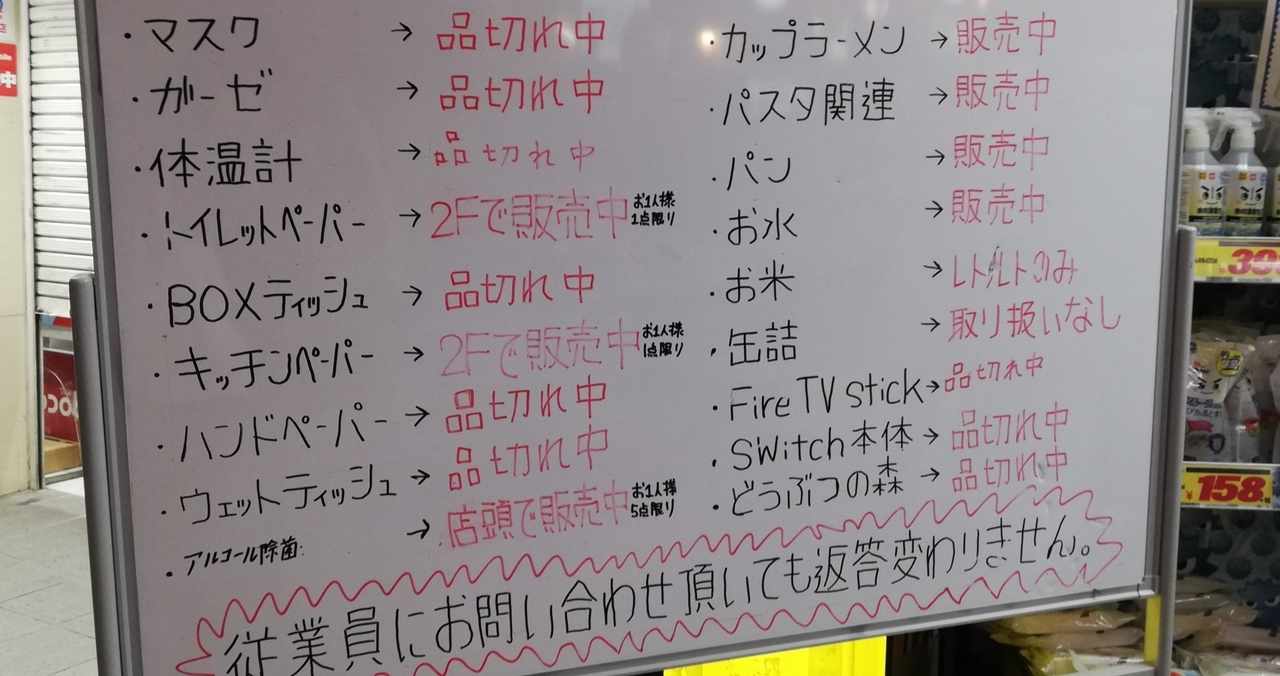 ・マスク → 品切れ中
・ガーゼ → 品切れ中
・体温計 → 品切れ中
・トイレットペーパー → 2Fで販売中 お1人様1点限り
・BOXティッシュ → 品切れ中
・キッチンペーパー → 2Fで販売中 お1人様1点限り
・ハンドペーパー → 品切れ中
・ウェットティッシュ → 品切れ中
・アルコール除菌: → 店頭で販売中 お1人様5点限り
・カップラーメン → 販売中
・パスタ関連 → 販売中
・パン → 販売中
・お水 → 販売中
・お米 → レトルトのみ
・缶詰 → 取り扱いなし
・Fire TV stick → 品切れ中
・Switch本体 → 品切れ中
・どうぶつの森 → 品切れ中
従業員にお問い合わせ頂いても返答変わりません。
¥158